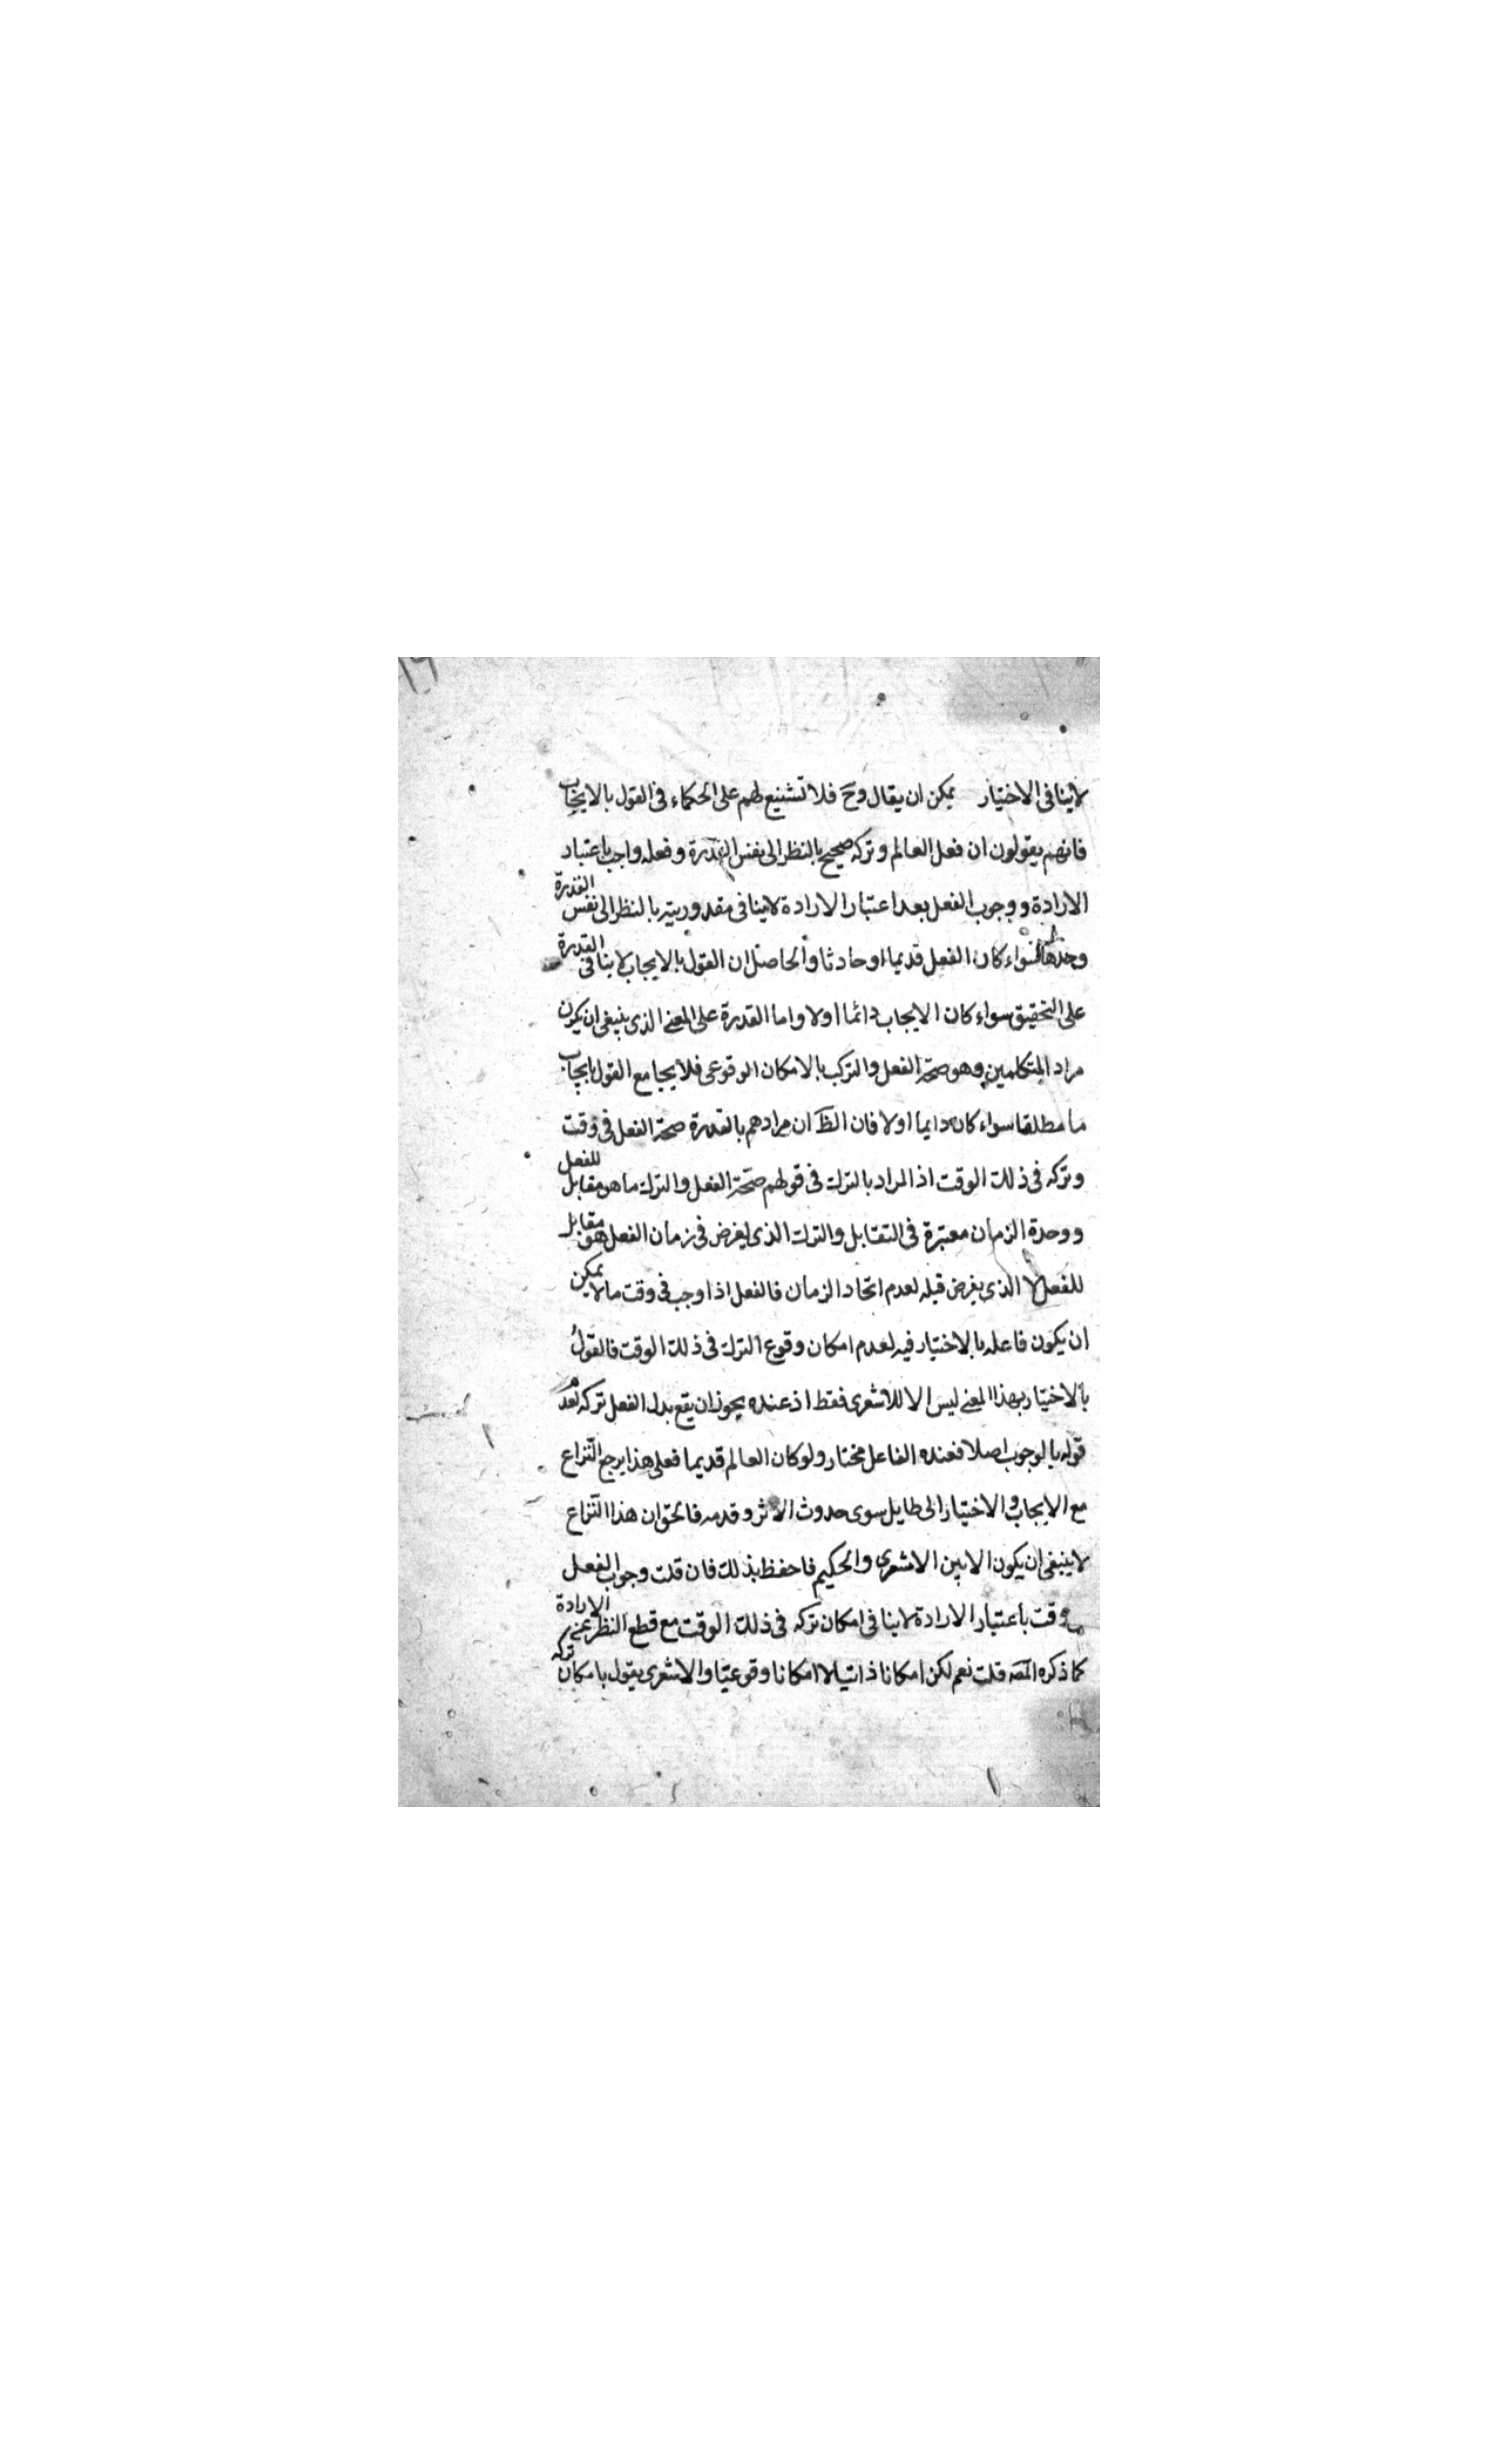 لاينافى الاختيار يمكن ان يقال وح فلا تشنيع لهم على الحكماء فى القول بالايجاب
فانهم يقولون ان فعل العالم وتركه صحيح بالنظر الى نفس القدرة وفعله واجب باعتبار
الارادة ووجوب الفعل بعد اعتبار الارادة لاينافى مقدوريته بالنظر الى نفس القدرة
وحدها سواء كان الفعل قديما اوحادثا والحاصل ان القول بالايجاب لاينافى القدرة
على التحقيق سواء كان الايجاب دائما اولا واما القدرة على المعنى الذى ينبغى ان يكون
مراد المتكلمين وهو صحة الفعل والترك بالامكان الوقوعى فلا يجامع القول بايجاب
ما مطلقا سواء كان دايما اولا فان الظ ان مرادهم بالقدرة صحة الفعل فى وقت
وتركه فى ذلك الوقت اذ المراد بالترك فى قولهم صحة الفعل والترك ما هو مقابل للفعل
ووحدة الزمان معتبرة فى التقابل والترك الذى يفرض فى زمان الفعل هو مقابل
للفعل لا الذى يفرض قبله لعدم اتحاد الزمان فالفعل اذا وجب فى وقت ما لا يمكن
ان يكون فاعله بالاختيار فيه لعدم امكان وقوع الترك فى ذلك الوقت فالقول
بالاختيار بهذا المعنى ليس الا للاشعرى فقط اذ عنده يجوز ان يقع بدل الفعل تركه لعدم
قوله بالوجوب اصلا فعنده الفاعل مختار ولو كان العالم قديما فعلى هذا يرجع النزاع
مع الايجاب والاختيار الى طايل سوى حدوث الاثر وقدمه فالحق ان هذا النزاع
لاينبغى ان يكون الا بين الاشعرى والحكيم فاحفظ بذلك فان قلت وجوب الفعل
وقت باعتبار الارادة لاينافى امكان تركه فى ذلك الوقت مع قطع النظر عن الارادة
كما ذكره المص قلت نعم لكن امكانا ذاتيا لا امكانا وقوعيا والاشعرى يقول بامكان تركه